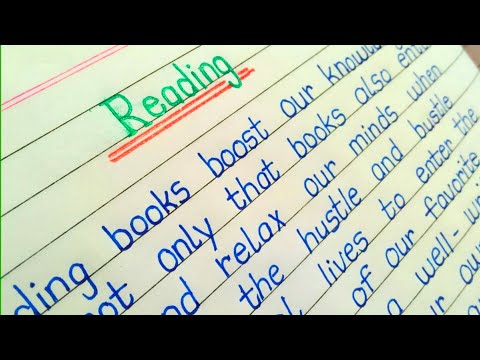 Reading
ding books boost our knowl
not only that books also ente
nd relax our minds when
the hustle and bustle
lives to enter the
of our favorite
a well-wri
our own